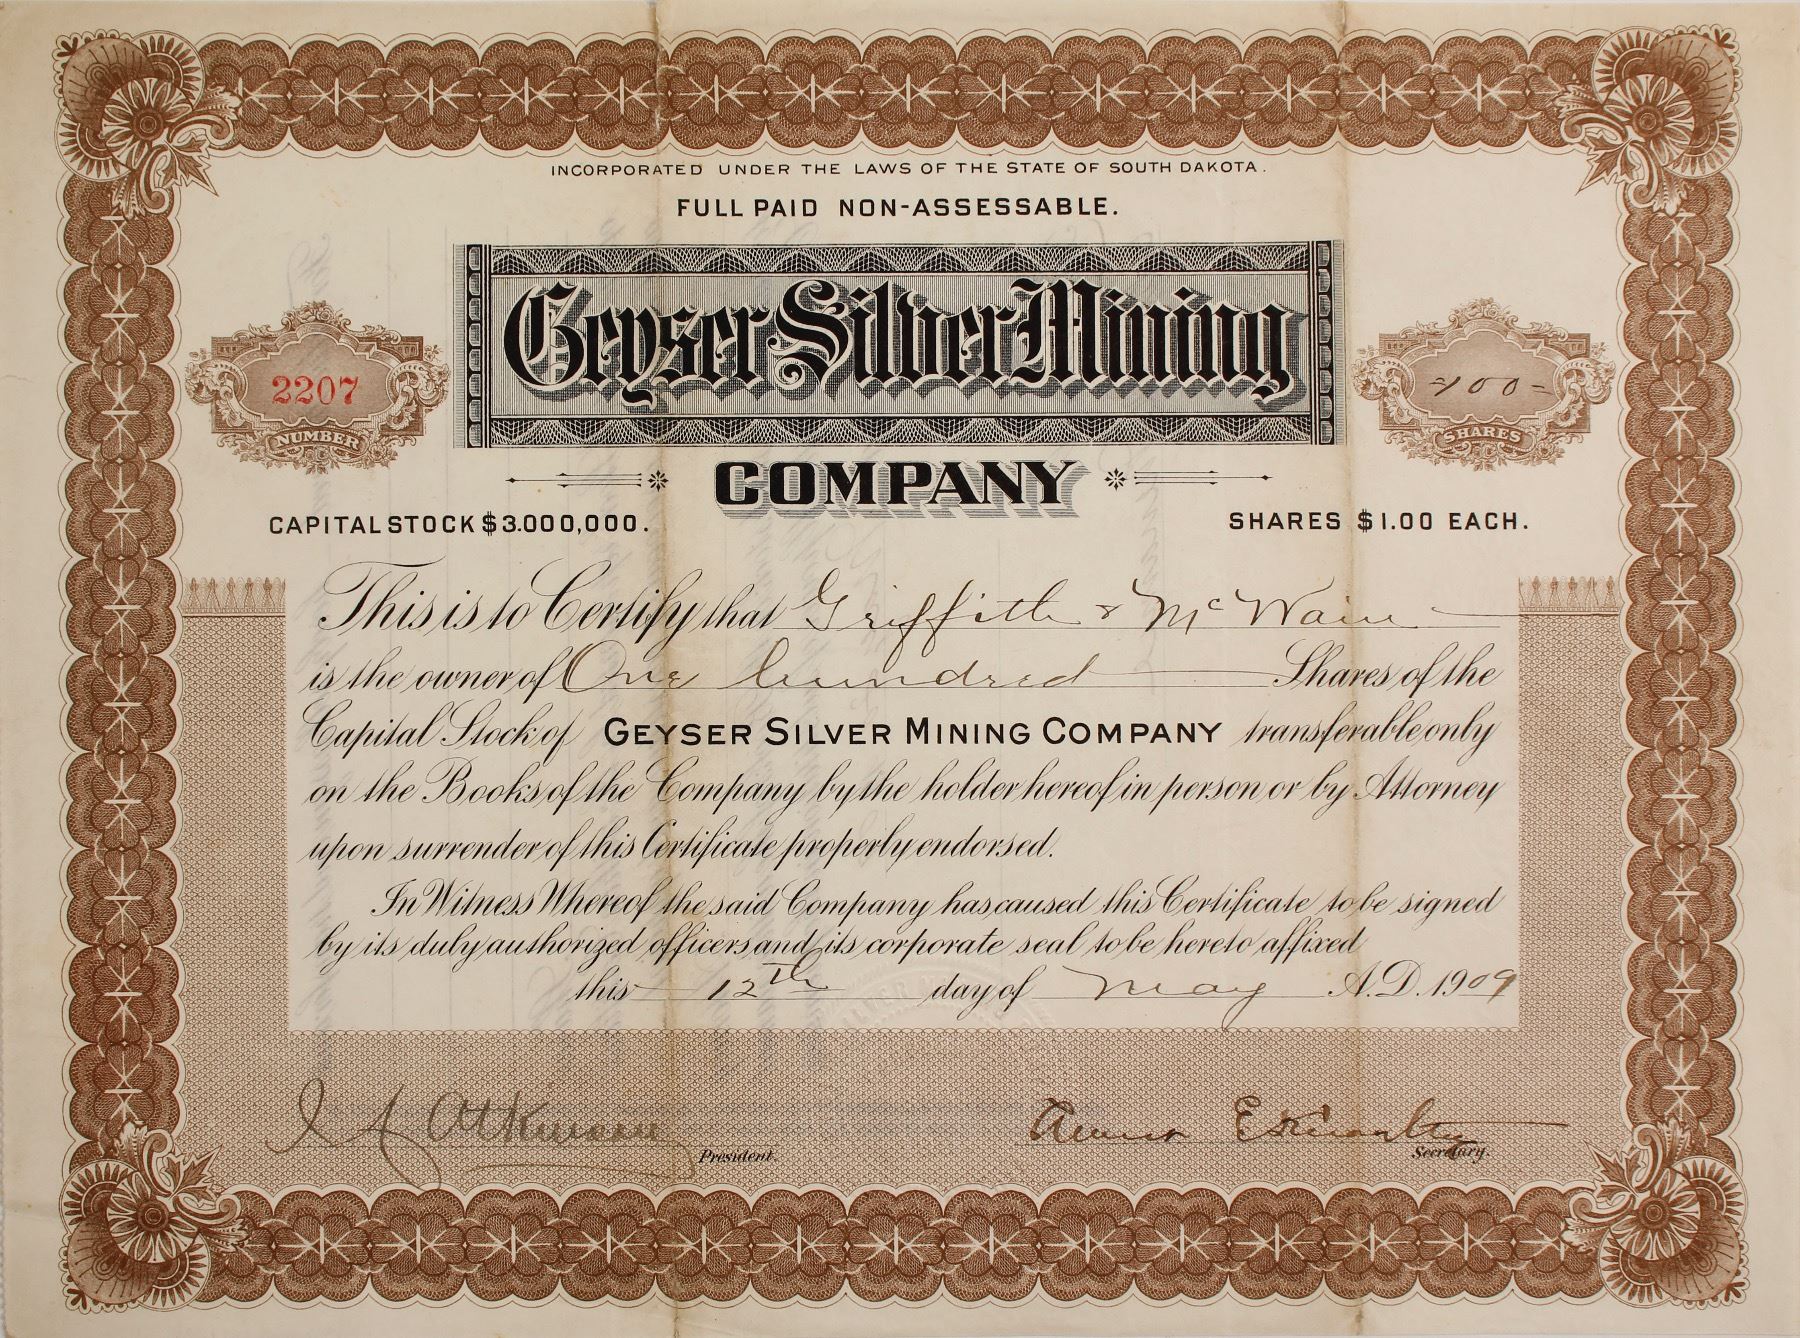 INCORPORATED UNDER THE LAWS OF THE STATE OF SOUTH DAKOTA.
FULL PAID NON-ASSESSABLE.
Geyser Silver Mining
2207
NUMBER
-100-
SHARES
COMPANY
CAPITAL STOCK $3.000,000.
SHARES $1.00 EACH.
This is to Certify that Griffith & McWain
is the owner of One hundred Shares of the
Capital Stock of GEYSER SILVER MINING COMPANY transferable only
on the Books of the Company by the holder hereof in person or by Attorney
upon surrender of this Certificate properly endorsed.
In Witness Whereof the said Company has caused this Certificate to be signed
by its duly authorized officers and its corporate seal to be hereto affixed
this 12th day of May A.D. 1909
J A Atkinson
President.
Secretary.